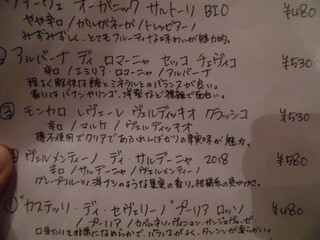 オーガニック サルトーリ BIO ¥480
やや辛口 / ガルガーネガ / トレッビアーノ
みずみずしく、とてもフルーティな味わいが魅力的。
② アルバーナ ディ ロマーニャ セッコ チェヴィコ ¥530
辛口 / エミリア・ロマーニャ / アルバーナ
程よく酸味とミネラルとのバランスが良い。
香りはバナナやリンゴ、洋梨など複雑で面白い。
③ モンカロ レヴェーレ ヴェルディッキオ クラッシコ ¥530
辛口 / マルケ / ヴェルディッキオ
樽不使用でクリアであふれんばかりの果実味が魅力。
ヴェルメンティーノ ディ サルデーニャ 2018 ¥580
辛口 / サルデーニャ / ヴェルメンティーノ
グレープフルーツ、洋ナシのような果実の香り。柑橘系の爽やかさ。
カステッリ・ディ・セヴェリーノ プーリア ロッソ ¥480
プーリア / カベルネソーヴィニヨン・サンジョヴェーゼ
口当たりも非常になめらかで、バランスがよく、タンニンが柔らかい。